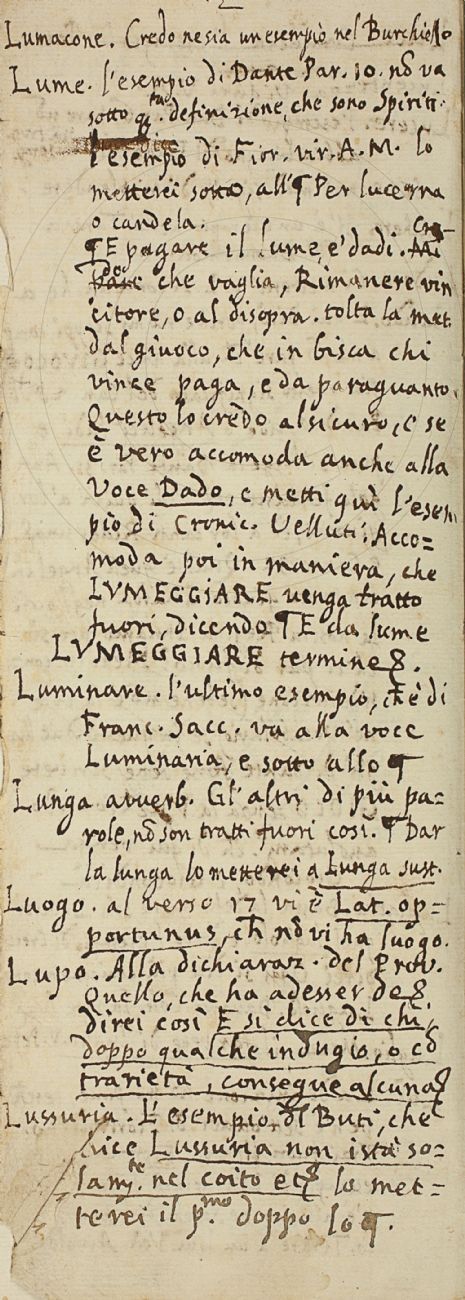 Lumacone. Credo ne sia un esempio nel Burchiello
Lume. l'esempio di Dante Par. 10. nō va
sotto definizione, che sono Spiriti.
l'esempio di Fior. vir. A. M. lo
metterei sotto, all'¶ Per lucerna
o candela.
¶ E pagare il lume, e' dadi. Cre-
do che vaglia, Rimanere vin
citore, o al disopra. tolta la met.
dal giuoco, che in bisca chi
vince paga, e da paraguanto.
Questo lo credo al sicuro, e se
è vero accomoda anche alla
Voce Dado, e metti quì l'esem
pio di Cronic. Velluti. Acco=
moda poi in maniera, che
LVMEGGIARE venga tratto
fuori, dicendo ¶ E da lume
LVMEGGIARE termine &.
Luminare. l'ultimo esempio, ch̄'è di
Franc. Sacc. va alla voce
Luminaria, e sotto allo ¶
Lunga avverb. Gl'altri di più pa=
role, nō son tratti fuori così. ¶ Dar
la lunga lo metterei a Lunga sust.
Luogo. al verso 17 vi è Lat. op=
portunus, ch̄ nō vi ha luogo.
Lupo. Alla dichiaraz. del Prov.
Quello, che ha adesser de &.
direi così E si dice di chi,
doppo qualche indugio, o cō
trarietà, consegue alcuna &
Lussuria. L'esempio, dl Buti, che
dice Lussuria non istà so=
lam.te nel coito etc lo met=
terei il p.mo doppo lo ¶.